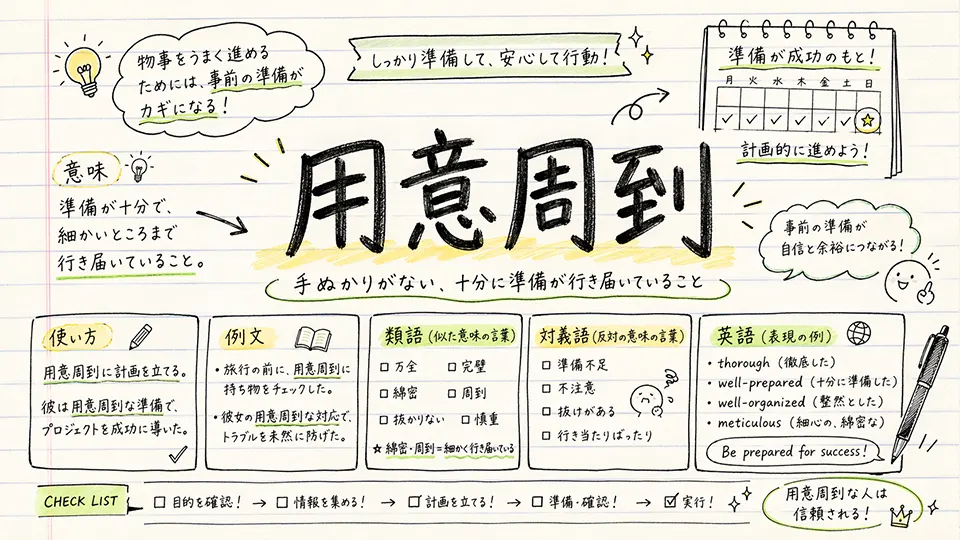 物事をうまく進める
ためには、事前の準備が
カギになる！
しっかり準備して、安心して行動！
準備が成功のもと！
月 火 水 木 金 土 日
計画的に進めよう！
意味
準備が十分で、
細かいところまで
行き届いていること。
用意周到
手ぬかりがない、十分に準備が行き届いていること
事前の準備が
自信と余裕につながる！
使い方
用意周到に計画を立てる。
彼は用意周到な準備で、
プロジェクトを成功に導いた。
例文
・旅行の前に、用意周到に
持ち物をチェックした。
・彼女の用意周到な対応で、
トラブルを未然に防げた。
類語（似た意味の言葉）
□ 万全 □ 完璧
□ 綿密 □ 周到
□ 抜かりない □ 慎重
☆ 綿密・周到＝細かく行き届いている
対義語（反対の意味の言葉）
□ 準備不足
□ 不注意
□ 抜けがある
□ 行き当たりばったり
英語（表現の例）
・thorough（徹底した）
・well-prepared（十分に準備した）
・well-organized（整然とした）
・meticulous（細心の、綿密な）
Be prepared for success!
CHECK LIST
□ 目的を確認！ → □ 情報を集める！ → □ 計画を立てる！ → □ 準備・確認！ → ☑ 実行！
用意周到な人は
信頼される！